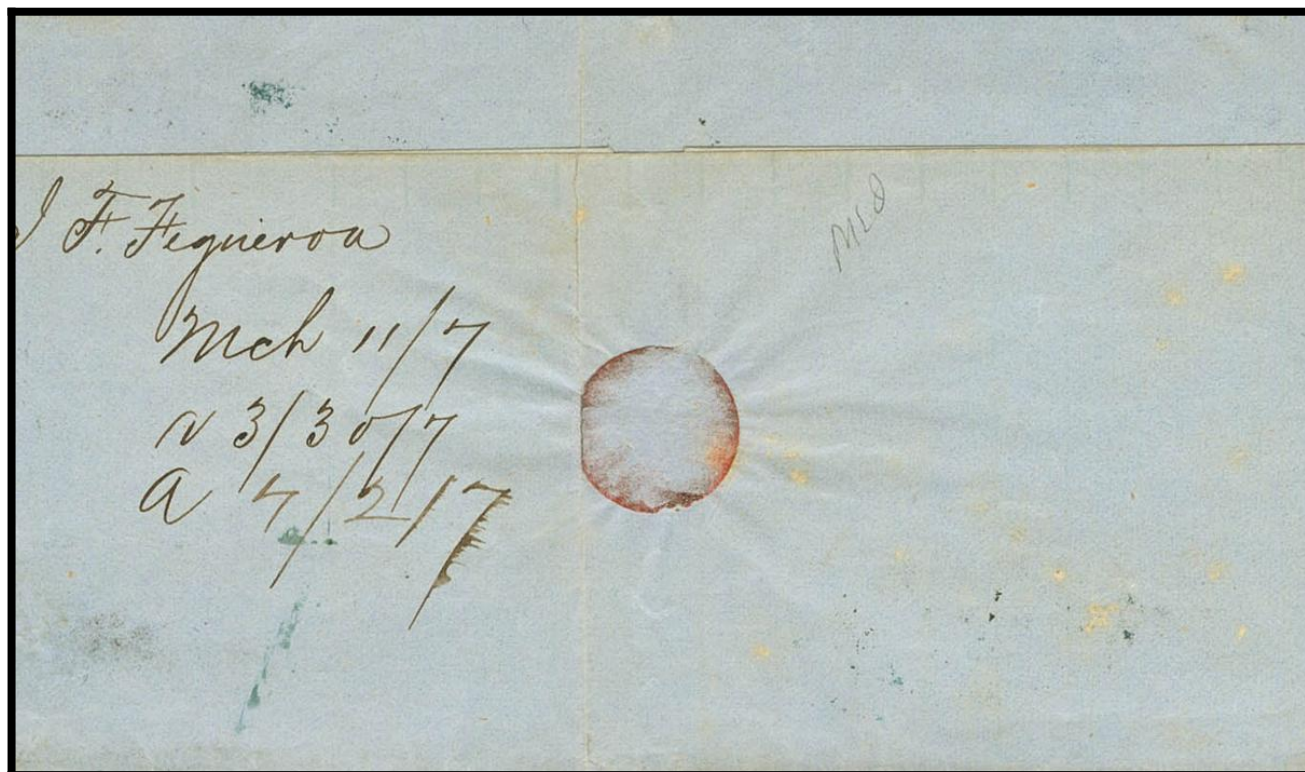 J F. Figueroa
Mch 11/7
N 3/30/7
A 4/2/7